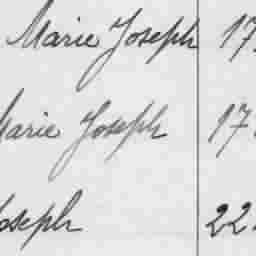 Marie Joseph 17
Marie Joseph 17
Joseph 22